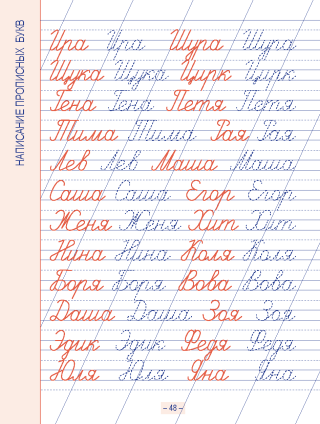 НАПИСАНИЕ ПРОПИСНЫХ БУКВ
Ира Ира Шура Шура
Щука Щука Цирк Цирк
Гена Гена Петя Петя
Тима Тима Рая Рая
Лев Лев Маша Маша
Саша Саша Егор Егор
Женя Женя Хит Хит
Нина Нина Коля Коля
Боря Боря Вова Вова
Даша Даша Зоя Зоя
Эдик Эдик Федя Федя
Юля Юля Яна Яна
– 48 –